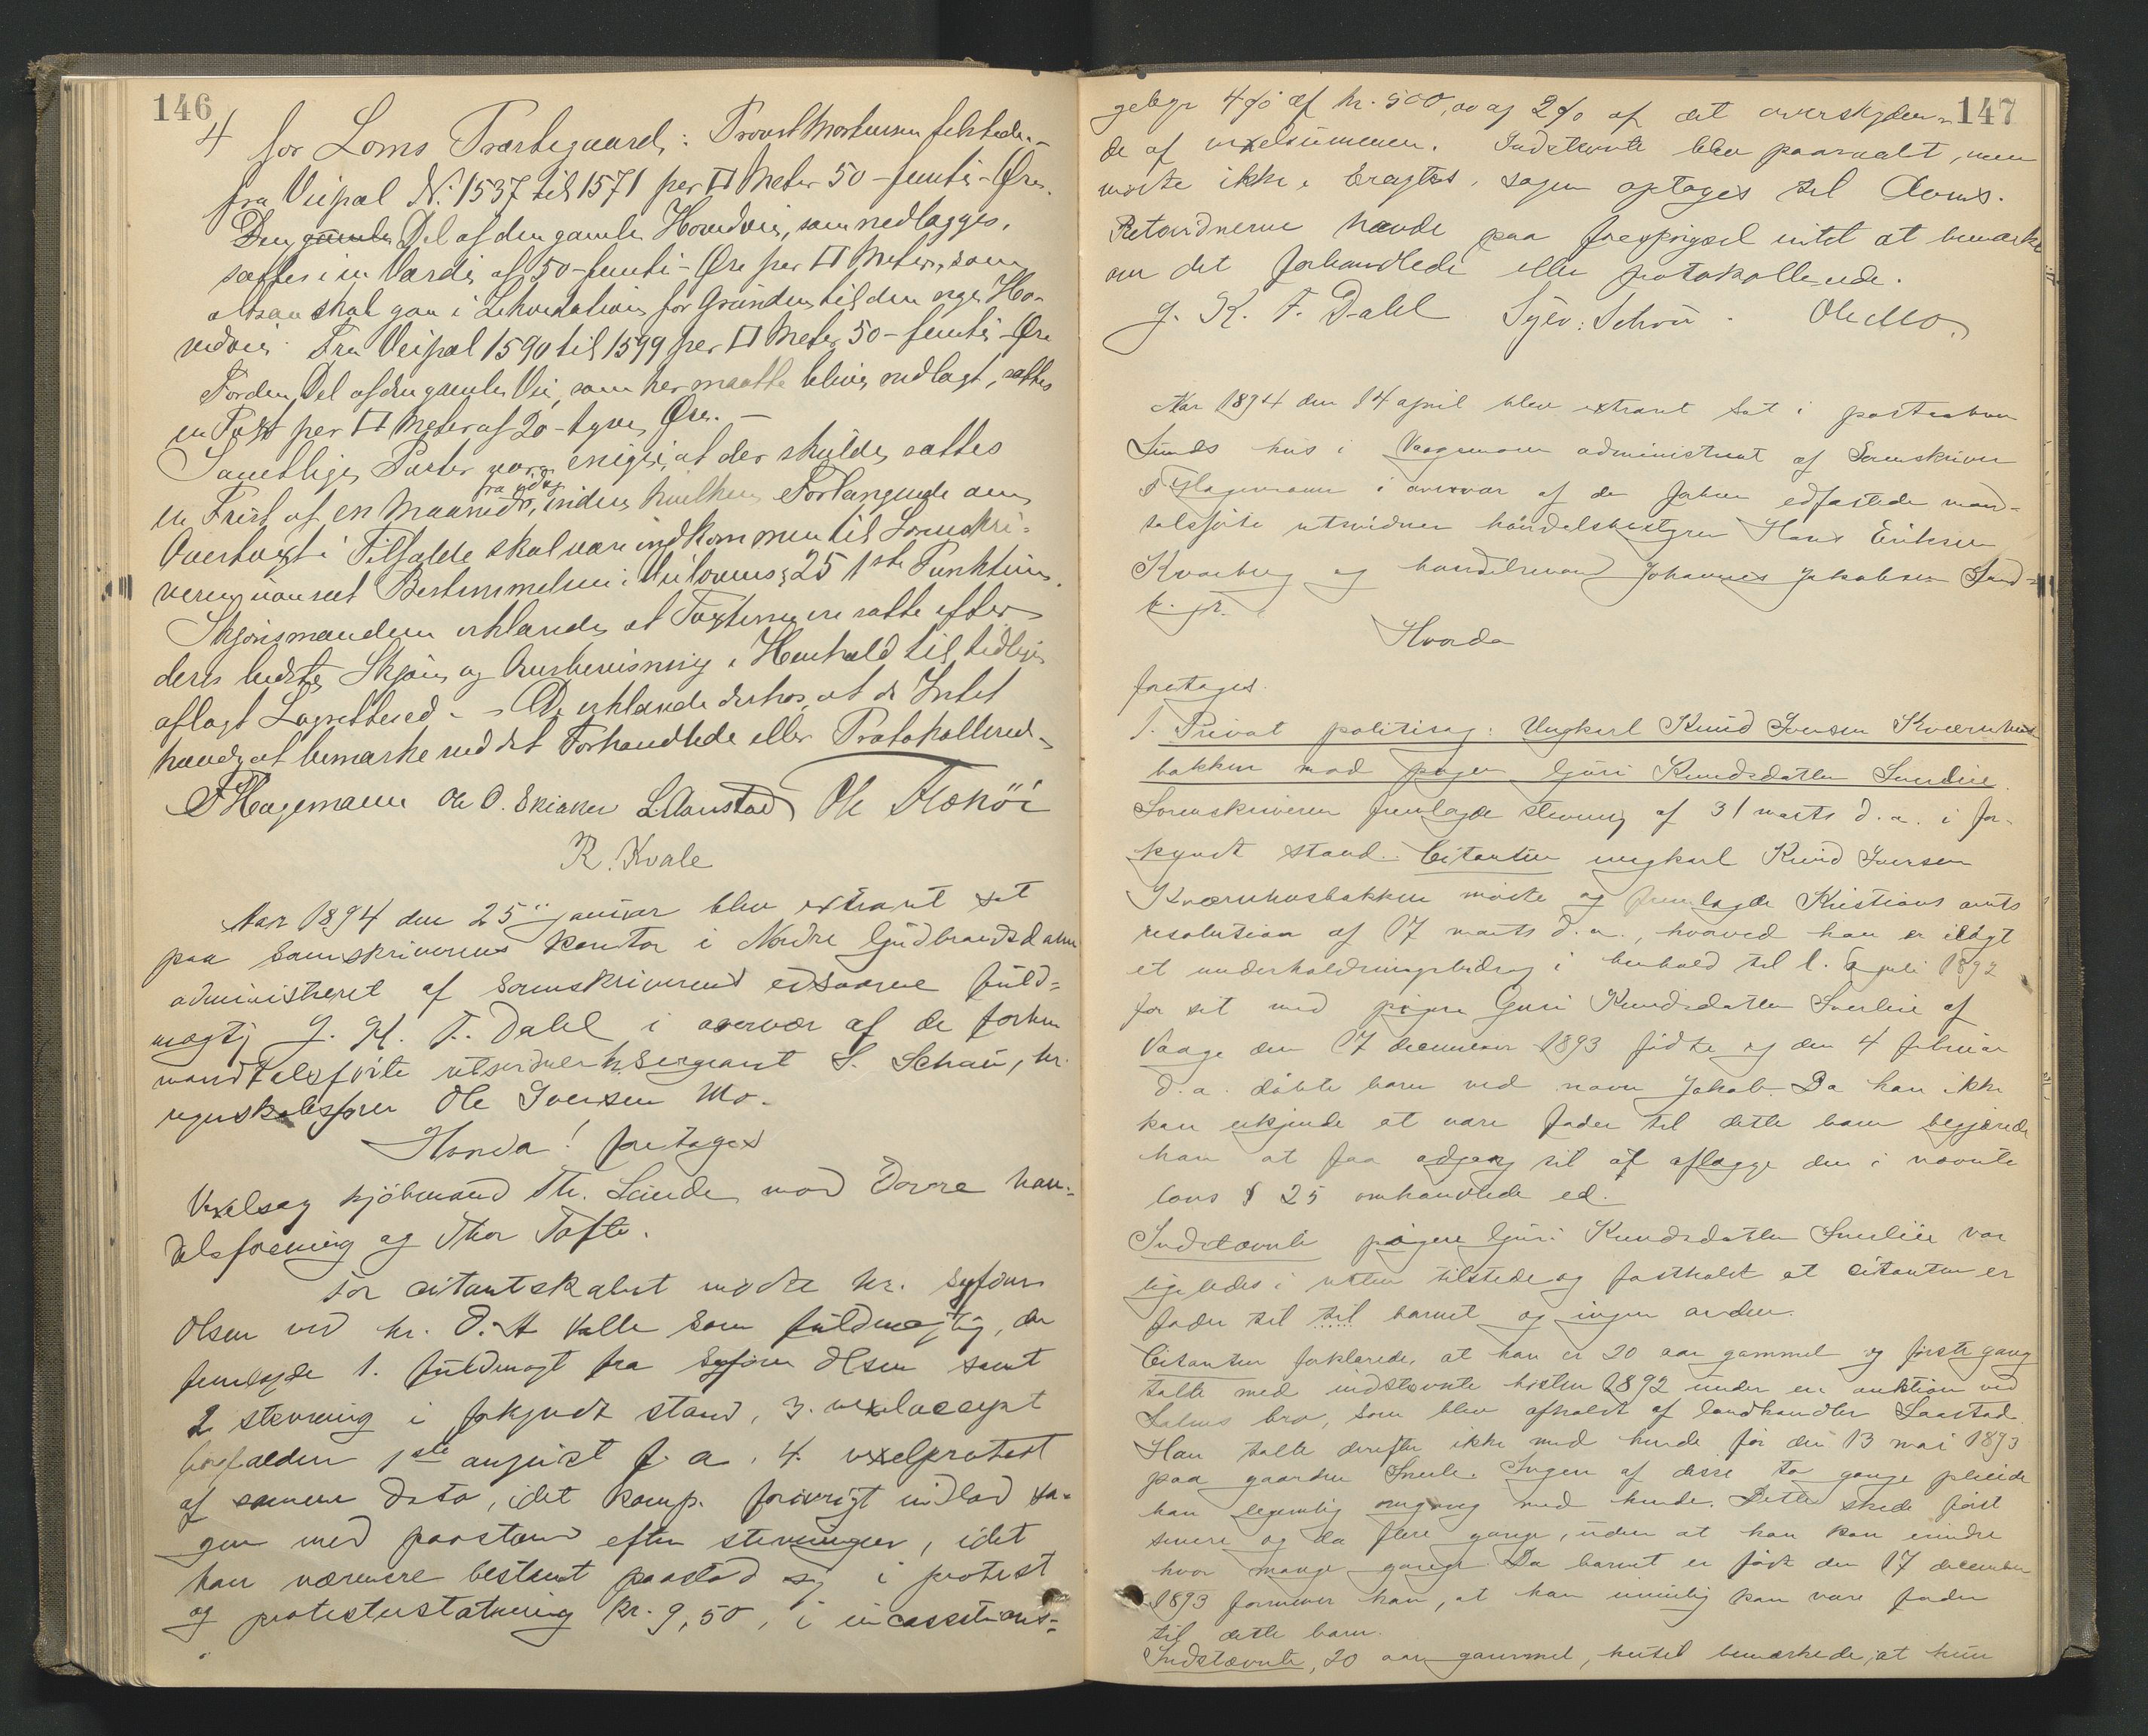 146
4 for Loms Præstegaard: Provst Mortensen tilstede. -
fra Veipæl No. 1537 til 1571 per □ Meter 50 - femti - Øre.
Den gamle Del af den gamle Hovedvei, som nedlægges,
sættes i en Værdi af 50 - femti - Øre per □ Meter, som
altsaa skal gaa i Likvidation for Grunden til den nye Ho-
vedvei. Fra Veipæl 1590 til 1599 per □ Meter 50 - femti - Øre
For den Del af den gamle Vei, som her maatte blive nedlagt, sattes
en Taxt per □ Meter af 20 - tyve Øre. -
Samtlige Parter vare enige i, at der skulde sættes
en Frist af en Maaned fra idag, inden hvilken Forlangende om
Overtaxt i Tilfælde skal være indkommen til Sorenskri-
veren uanseet Bestemmelsen i Veilovens § 25 1ste Punktum.
Skjønsmændene erklærede, at Taxterne ere satte efter
deres bedste Skjøn og Overbevisning i Henhold til tidligere
aflagt Lagretteed. - De erklærede derhos, at de Intet
havde at bemærke ved det Forhandlede eller Protokollerede
F Hagemann Ole O. Skiaker L. Aanstad Ole Flekøi
R. Kvale
Aar 1894 den 25 januar blev extraret sat
paa Sorenskriverens kontor i Nordre Gudbrandsdalen
administreret af Sorenskriverens edsvorne fuld=
mægtig J. K. F. Dahl i overvær af de forhen
mandtalsførte retsvidner hr. Sergeant S. Schou, hr.
regnskabsfører Ole Iversen Mo.
Hvorda! foretages
Vexelsag kjøbmand Th. Lunde mod Dovre han=
delsforening og Thor Tofte.
For citantskabet mødte hr. Syfour
Olsen ved hr. O. A Kalle som fuldmægtig, der
fremlagde 1. fuldmagt fra Syfour Olsen samt
2 stevning i forkyndt stand, 3. vexelaccept
forfalden 1ste august f. a. 4. vexelprotest
af samme dato, idet komp. forøvrigt indlod sa-
gen med paastand efter stevningen, idet
han nærmere bestemt paastod sig i protest
og protesterstatning kr. 9,50, i incassations-
147
gebyr 4 % af kr. 500,00 og 2 % af det overskyden-
de af vexelsummen. Indstevnte blev paaraabt, men
mødte ikke. Eragtes, sagen optages til doms.
Retsvidnerne havde paa forespørgsel intet at bemærke
om det forhandlede eller protokollerede.
J. K. F. Dahl Sylv: Schou. Ole Mo.
Aar 1894 den 14 april blev extraret sat i postaabner
Sunds hus i Vaagemoen administreret af Sorenskriver
F Hagemann i overvær af de forhen edfæstede mand-
talsførte retsvidner handelsbestyrer Hans Eriksen
Kvarberg og handelsmand Johannes Jakobsen Sand-
b. jr.
Hvorda
foretages.
1. Privat politisag: Ungkarl Knud Iversen Kværnhus
bakken mod pigen Guri Knudsdatter Snerlie.
Sorenskriveren fremlagde stevning af 31 marts d. a. i for-
kyndt stand. Citanten ungkarl Knud Iversen
Kværnhusbakken mødte og fremlagde Kristians amts
resolution af 17 marts d. a., hvorved han er ilagt
et underholdningsbidrag i henhold til l. 6 juli 1892
for sit med pigen Guri Knudsdatter Snerlie af
Vaage den 17 december 1893 fødte og den 4 februar
d. a. døbte barn ved navn Jakob. Da han ikke
kan erkjende at være fader til dette barn begjærede
han at faa adgang til at aflægge den i nævnte
lovs § 25 omhandlede ed.
Indstævnte pigen Guri Knudsdatter Snerlie var
ligeledes i retten tilstede og fastholdt at citanten er
fader til til barnet og ingen anden.
Citanten forklarede, at han er 20 aar gammel og første gang
talte med indstævnte høsten 1892 under en auktion ved
Lalms bro, som blev afholdt af landhandler Laastad.
Han talte derefter ikke med hende før den 13 mai 1893
paa gaarden Snerle. Ingen af disse to gange pleiede
han legemlig omgang med hende. Dette skede først
senere og da flere gange, uden at han kan erindre
hvor mange gange. Da barnet er født den 17 december
1893 formener han, at han umulig kan være fader
til dette barn.
Indstævnte, 20 aar gammel, hertil bemærkede, at hun